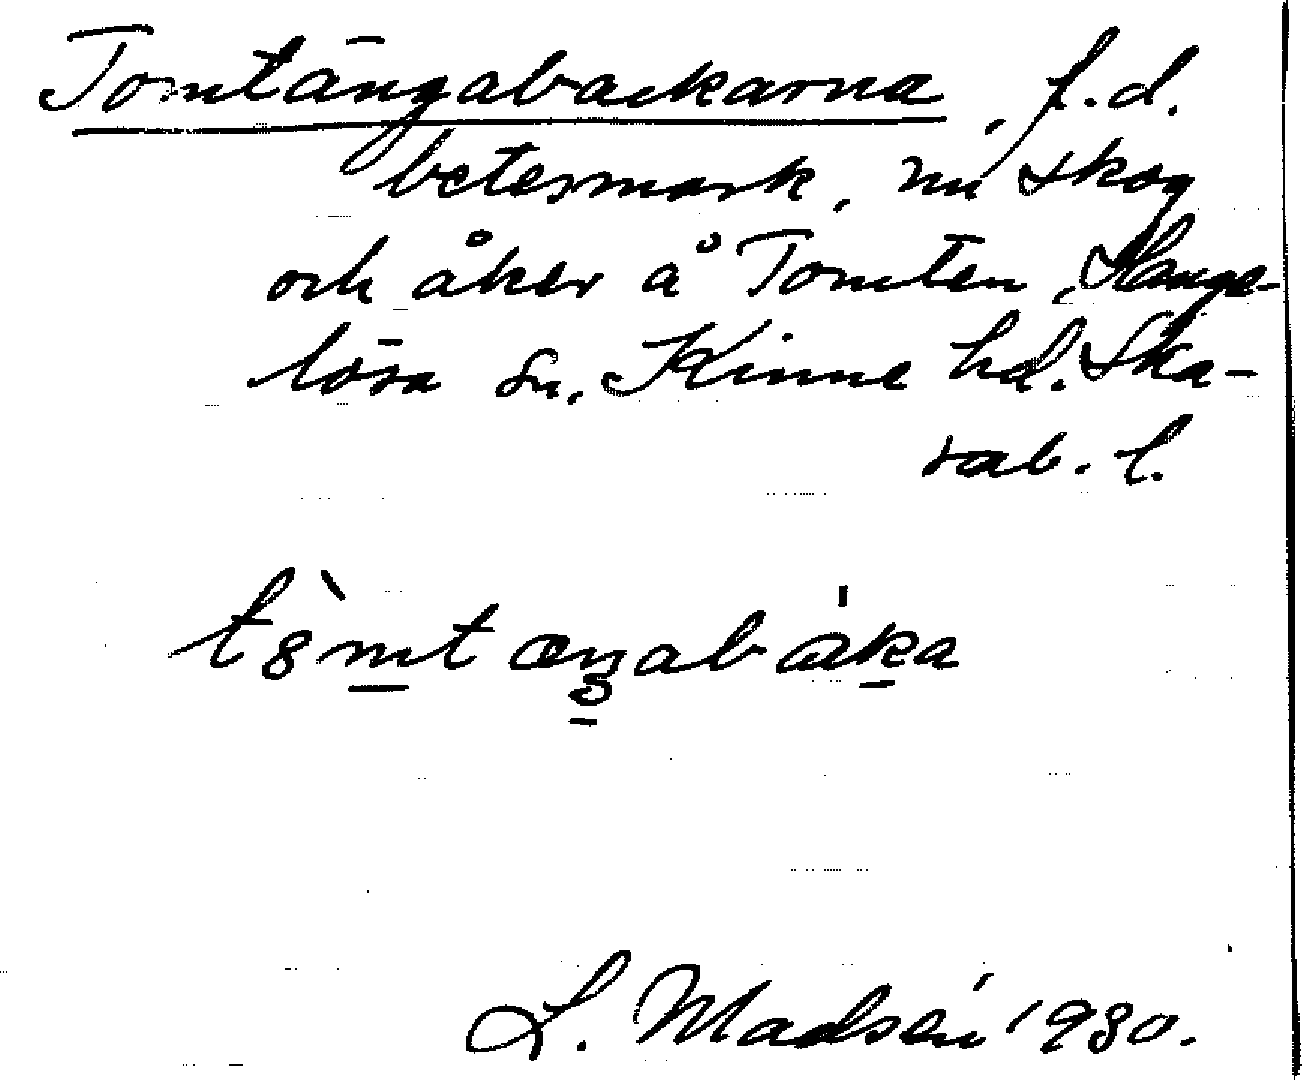 Tomtängabackarna, f.d.
betesmark, nu skog
och åker å Tomten, Hange-
lösa sn, Kinne hd. Ska-
rab. l.
L. Madsén 1930.